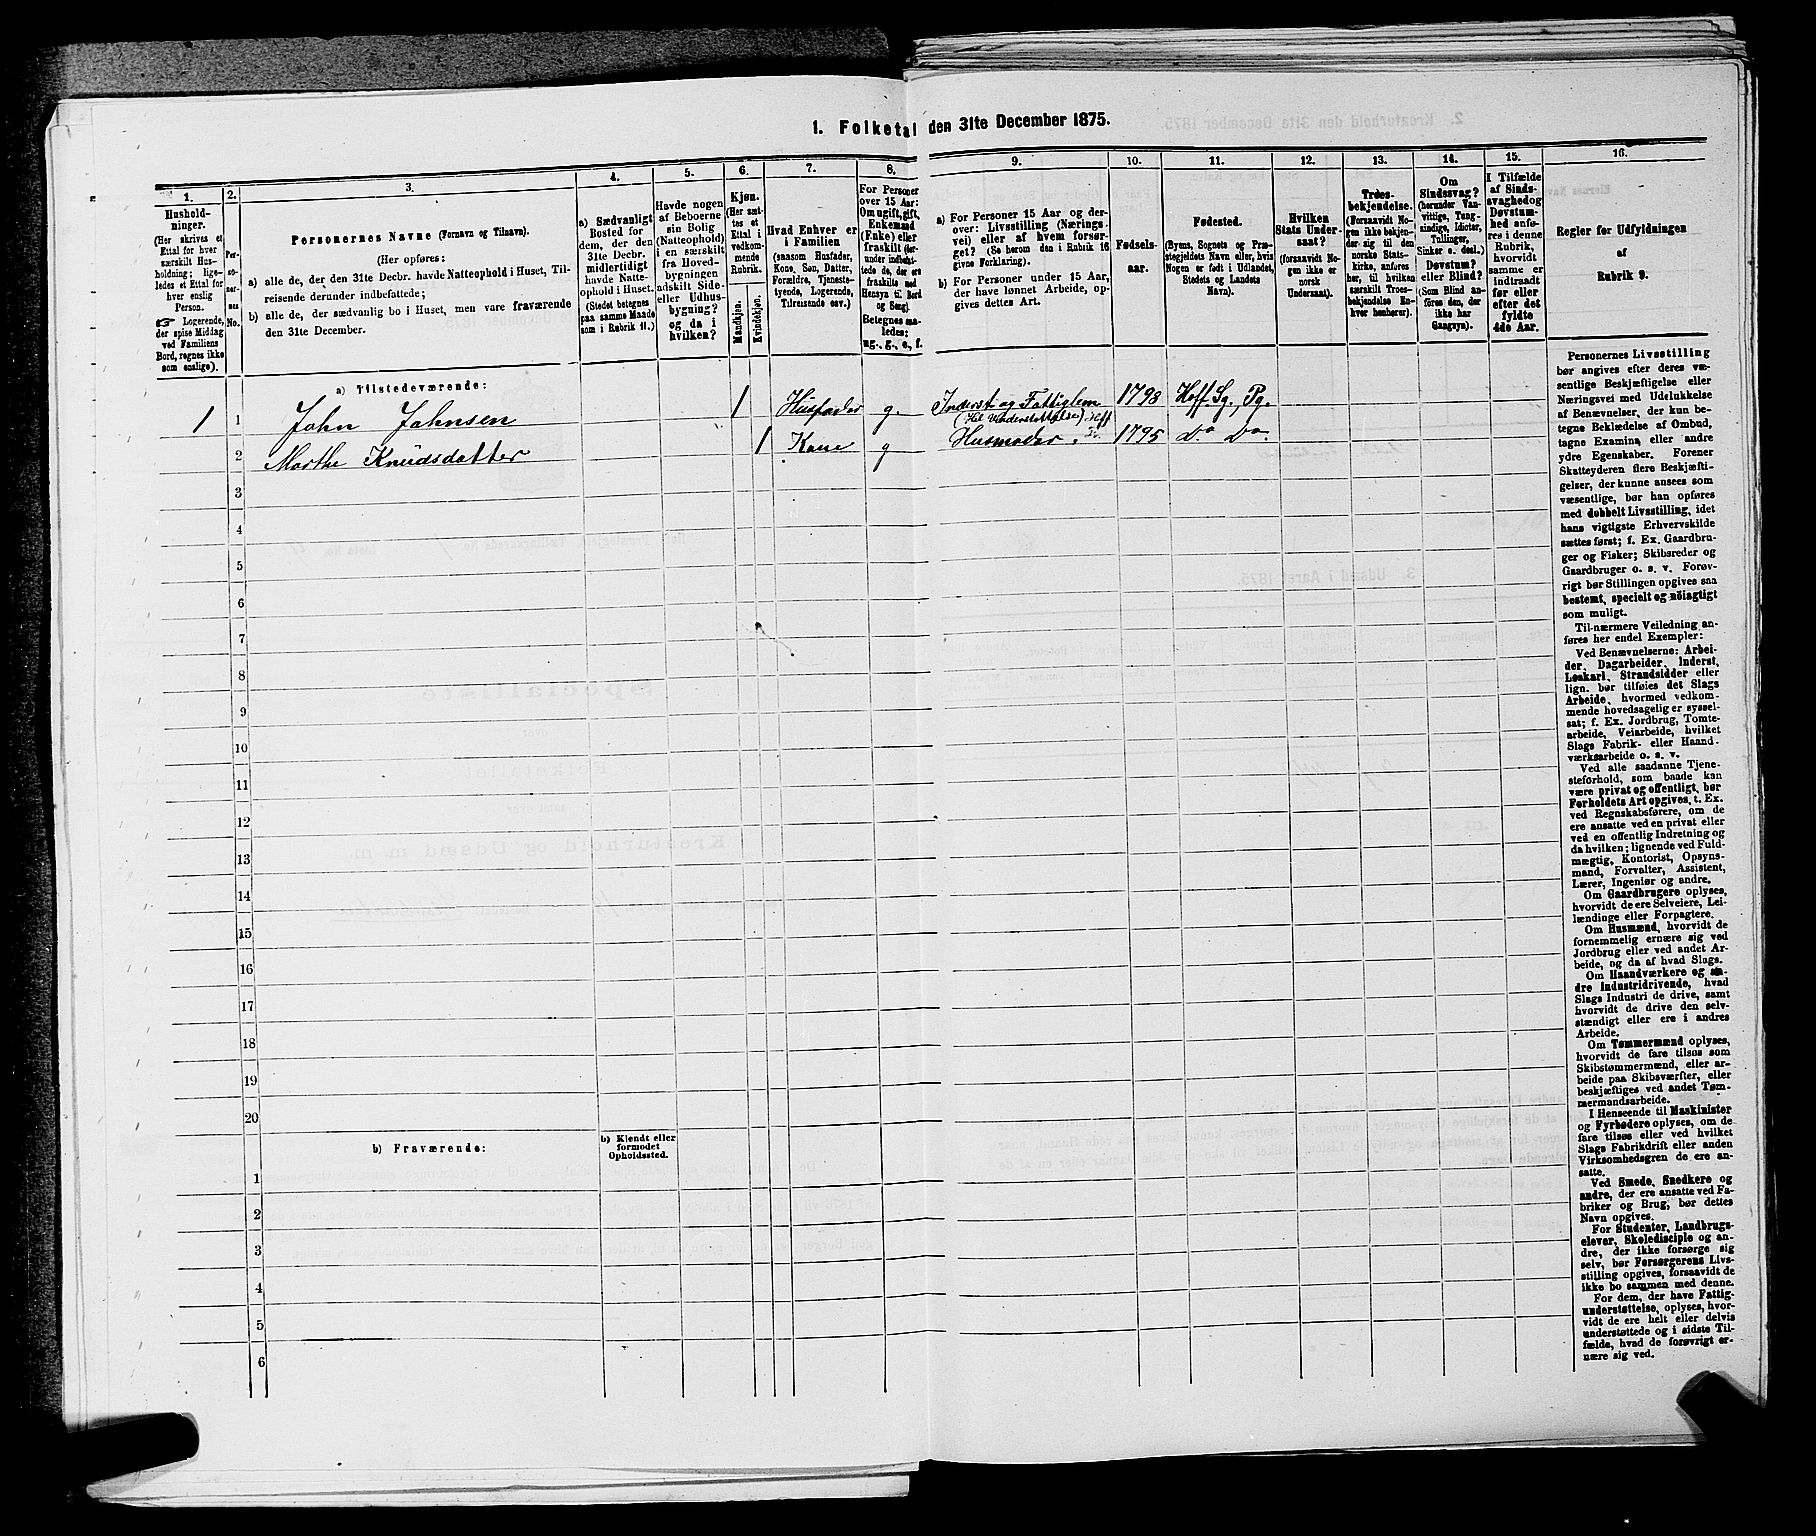 1. Folketal den 31te December 1875.
1.
Hushold-
ninger.
(Her skrives et
Ettal for hver
særskilt Hus-
holdning; lige-
ledes et Ettal for
hver enslig
Person.
☞ Logerende,
der spise Middag
ved Familiens
Bord, regnes ikke
som enslige).
2.
Per-
so-
ner-
nes
No.
3.
Personernes Navne (Fornavn og Tilnavn).
(Her opføres:
a) alle de, der den 31te Decbr. havde Natteophold i Huset, Til-
reisende derunder indbefattede;
b) alle de, der sædvanlig bo i Huset, men vare fraværende
den 31te December.
4.
a) Sædvanligt
Bosted for
dem, der den
31te Decbr.
midlertidigt
havde Natte-
ophold i Huset.
(Stedet betegnes
paa samme Maade
som i Rubrik 11.)
5.
Havde nogen
af Beboerne
sin Bolig
(Natteophold)
i en særskilt
fra Hoved-
bygningen
adskilt Side-
eller Udhus-
bygning?
og da i
hvilken?
6.
Kjøn.
(Her sæt-
tes et
Ettal i
vedkom-
mende
Rubrik.
Mandkjøn.
Kvindekjøn.
7.
Hvad Enhver er
i Familien
(saasom Husfader,
Kone, Søn, Datter,
Forældre, Tjeneste-
tyende, Logerende,
Tilreisende osv.)
8.
For Personer
over 15 Aar:
Om ugift, gift,
Enkemand
(Enke) eller
fraskilt (der-
under indbefat-
tede de, der ere
fraskilte med
Hensyn til Bord
og Seng).
Betegnes saa-
ledes:
ug., g., e., f.
9.
a) For Personer 15 Aar og der-
over: Livsstilling (Nærings-
vei) eller af hvem forsør-
get? (Se herom den i Rubrik 16
givne Forklaring).
b) For Personer under 15 Aar,
der have lønnet Arbeide, op-
gives dettes Art.
10.
Fødsels-
aar.
11.
Fødested.
(Byens, Sognets og Præ-
stegjeldets Navn eller, hvis
Nogen er født i Udlandet,
Stedets og Landets
Navn).
12.
Hvilken
Stats Under-
saat?
(forsaavidt No-
gen ikke er
norsk
Undersaat).
13.
Troes-
bekjendelse.
(Forsaavidt No-
gen ikke bekjen-
der sig til den
norske Stats-
kirke, anføres
her, til hvilken
særskilt Troes-
bekjendelse En-
hver henhører).
14.
Om
Sindssvag?
(herunder Van-
vittige, Tung-
sindige, Idioter,
Tullinger,
Sinker o. desl.)
Døvstum?
eller Blind?
(Som Blind an-
føres den, der
ikke har
Gangsyn).
15.
I Tilfælde
af Sinds-
svaghed og
Døvstum-
hed anfø-
res i denne
Rubrik,
hvorvidt
samme er
indtraadt
før eller
efter det
fyldte
4de Aar.
16.
Regler for Udfyldningen
af
Rubrik 9.
a) Tilstedeværende:
1 1 John Johnsen 1 Husfader g. Inderst og Fattiglem 1798 Hoff Sg., Pg.
2 Marthe Knudsdatter 1 Kone g Husmoder 1795 Do Do
3
4
5
6
7
8
9
10
11
12
13
14
15
16
17
18
19
20
b) Fraværende:
b) Kjendt eller
formodet
Opholdssted.
1
2
3
4
5
6
Personernes Livsstilling
bør angives efter deres væ-
sentlige Beskjæftigelse eller
Næringsvei med Udelukkelse
af Benævnelser, der kun be-
tegne Beklædelse af Ombud,
tagne Examina eller andre
ydre Egenskaber. Forener
Skatteyderen flere Beskjæfti-
gelser, der kunne ansees som
væsentlige, bør han opføres
med dobbelt Livsstilling, idet
hans vigtigste Erhvervskilde
sættes først; f. Ex. Gaardbru-
ger og Fisker; Skibsreder og
Gaardbruger o. s. v. Forøv-
rigt bør Stillingen opgives saa
bestemt, specielt og nöiagtigt
som muligt.
Til nærmere Veiledning an-
føres her endel Exempler:
Ved Benævnelserne: Arbei-
der, Dagarbeider, Inderst,
Løskarl, Strandsidder eller
lign. bør tilføies det Slags
Arbeide, hvormed vedkom-
mende hovedsagelig er syssel-
sat; f. Ex. Jordbrug, Tomte-
arbeide, Veiarbeide, hvilket
Slags Fabrik- eller Haand-
værksarbeide o. s. v.
Ved alle saadanne Tjene-
steforhold, som baade kan
være privat og offentligt, bør
Forholdets Art opgives, t. Ex.
ved Regnskabsførere, om de
ere ansatte ved en privat eller
ved en offentlig Indretning og
da hvilken; lignende ved Fuld-
mægtig, Kontorist, Opsyns-
mand, Forvalter, Assistent,
Lærer, Ingeniør og andre.
Om Gaardbrugere oplyses,
hvorvidt de ere Selveiere, Lei-
lændinge eller Forpagtere.
Om Husmænd, hvorvidt de
fornemmelig ernære sig ved
Jordbrug eller ved andet Ar-
beide, og da af hvad Slags.
Om Haandværkere og an-
dre industridrivende, hvad
Slags Industri de drive, samt
hvorvidt de drive den selv-
stændigt eller ere i andres
Arbeide.
Om Tømmermænd oplyses,
hvorvidt de fare tilsøs som
Skibstømmermænd, eller ar-
beide paa Skibsværfter, eller
beskjæftiges ved andet Tøm-
mermandsarbeide.
I Henseende til Maskinister
og Fyrbødere oplyses, om de
fare tilsøs eller ved hvilket
Slags Fabrikdrift eller anden
Virksomhedsgren de ere an-
satte.
Ved Smede, Snedkere og
andre, der ere ansatte ved Fa-
briker og Brug, bør dettes
Navn opgives.
For Studenter, Landbrugs-
elever, Skoledisciple og an-
dre, der ikke forsørge sig
selv, bør Forsørgerens Livs-
stilling opgives, forsaavidt de
ikke bo sammen med denne.
For dem, der have Fattig-
understøttelse, oplyses, hvor-
vidt de ere helt eller delvis
understøttede og i sidste Til-
fælde, hvad de forøvrigt er-
nære sig ved.